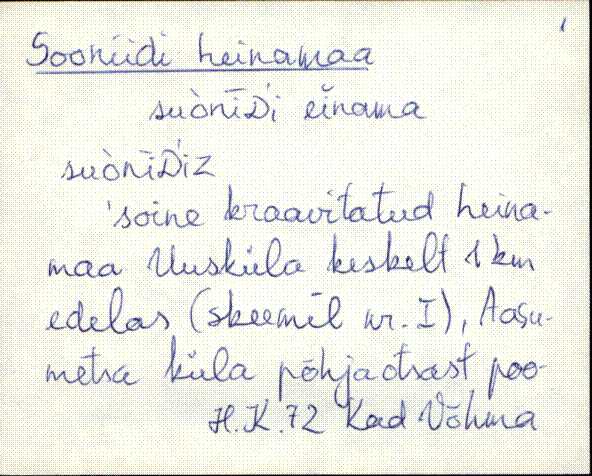 1
Sooniidi heinamaa
suònīD́i eìnama
suònīD́iz
'soine kraavitatud heina-
maa Uusküla keskelt 1 km
edelas (skeemil nr. I), Aasu-
metsa küla põhjaotsast poo-
H.K. 72 Kad Võhma